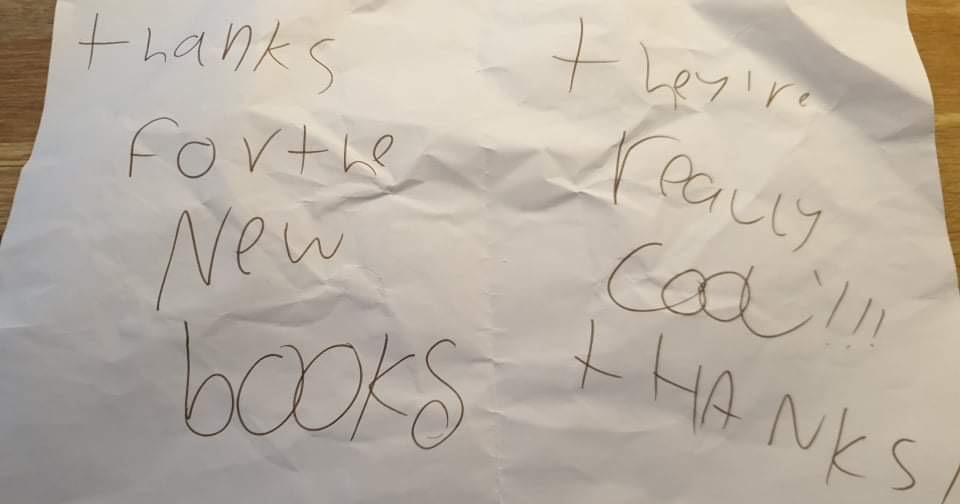 thanks
For the
New
books
they're
really
Cool!!!
tHANKS!